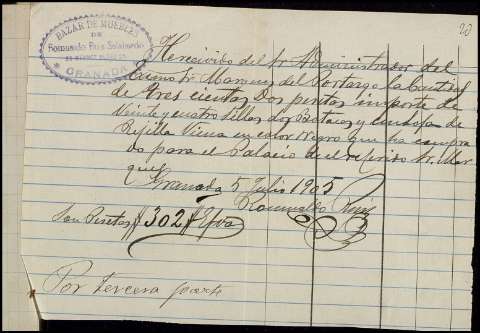 20
BAZAR DE MUEBLES
DE
Romualdo Ruiz
GRANADA
He recivido del Sr Administrador del
Exmo Sr Marques del Portazgo la Cantidad
de Tres cientas Dos pesetas importe de
Veinte y cuatro sillas dos Butacas y un sofa de
Rejilla Viena en color Negro que ha compra
do para el Palacio de el referido Sr. Mar
ques
Granada 5 Julio 1905
Romualdo Ruiz
Son Pesetas # 302 #
Por tercera parte